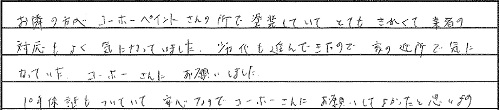 お隣の方へユーホーペイントさんの所で塗装していてとてもきれくて業者の
対応もよく気になっていました。劣化も進んできたので家の近所で気に
なっていたユーホーさんにお願いしました
10年保証もついていて安心なのでユーホーさんにお願いしてよかったと思います